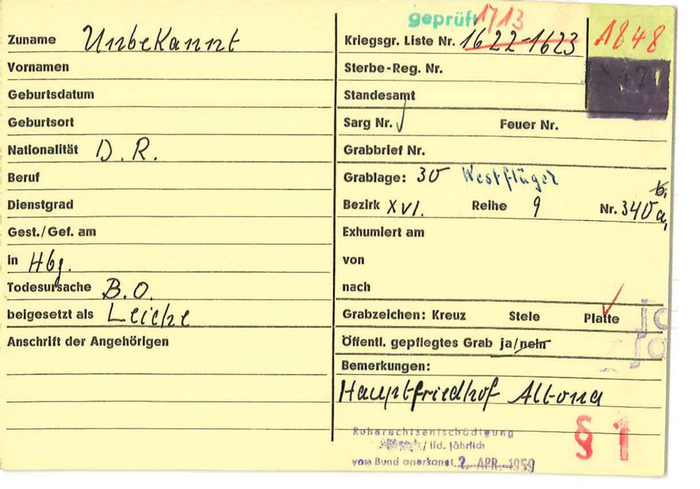 geprüft 1713
Zuname Unbekannt
Vornamen
Geburtsdatum
Geburtsort
Nationalität D. R.
Beruf
Dienstgrad
Gest./Gef. am
in Hbg.
Todesursache B.O.
beigesetzt als Leiche
Anschrift der Angehörigen
Kriegsgr. Liste Nr. 1622-1623 1848
Sterbe-Reg. Nr.
Standesamt
Sarg Nr. Feuer Nr.
Grabbrief Nr.
Grablage: 30 Westflügel
Bezirk XVI. Reihe 9 Nr. 340 a,
Exhumiert am
von
nach
Grabzeichen: Kreuz Stele Platte
Öffentl. gepflegtes Grab ja/nein
Bemerkungen:
Hauptfriedhof Altona
Ruherechtsentschädigung
/ lfd. jährlich
vom Bund anerkannt 2. APR. 1959
§ 1